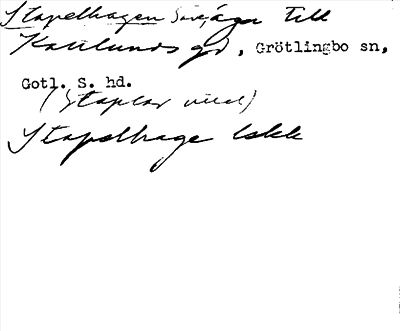 Stapelhagen Sorejage till
Kattlunds gd, Grötlingbo sn,
Gotl. S. hd.
(Staplar virel)
Stapelhage lskk